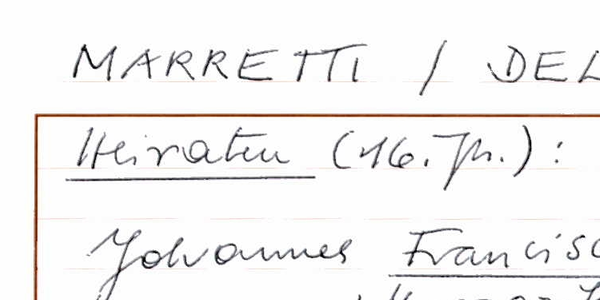 MARRETTI / DEL
Heiraten (16. Jh.):
Johannes Francisc